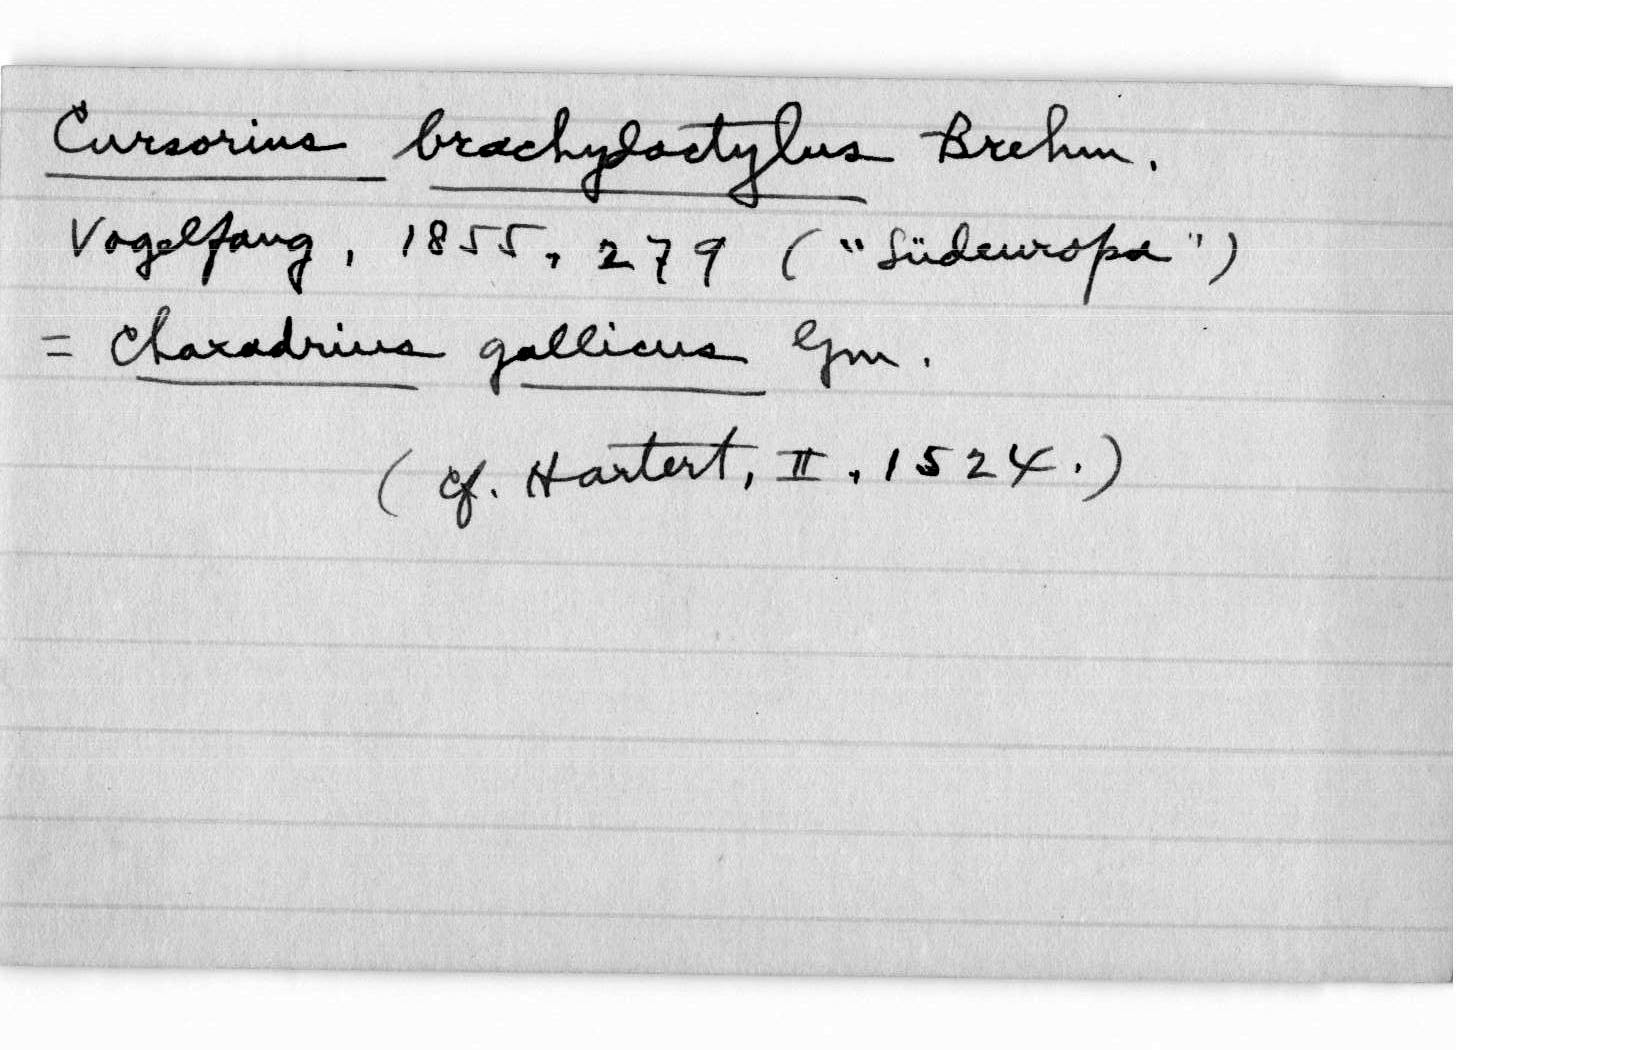 Cursorius brachydactylus Brehm.
Vogelfang, 1855, 279 ("Südeuropa")
= Charadrius gallicus Gm.
(cf. Hartert, II, 1524.)